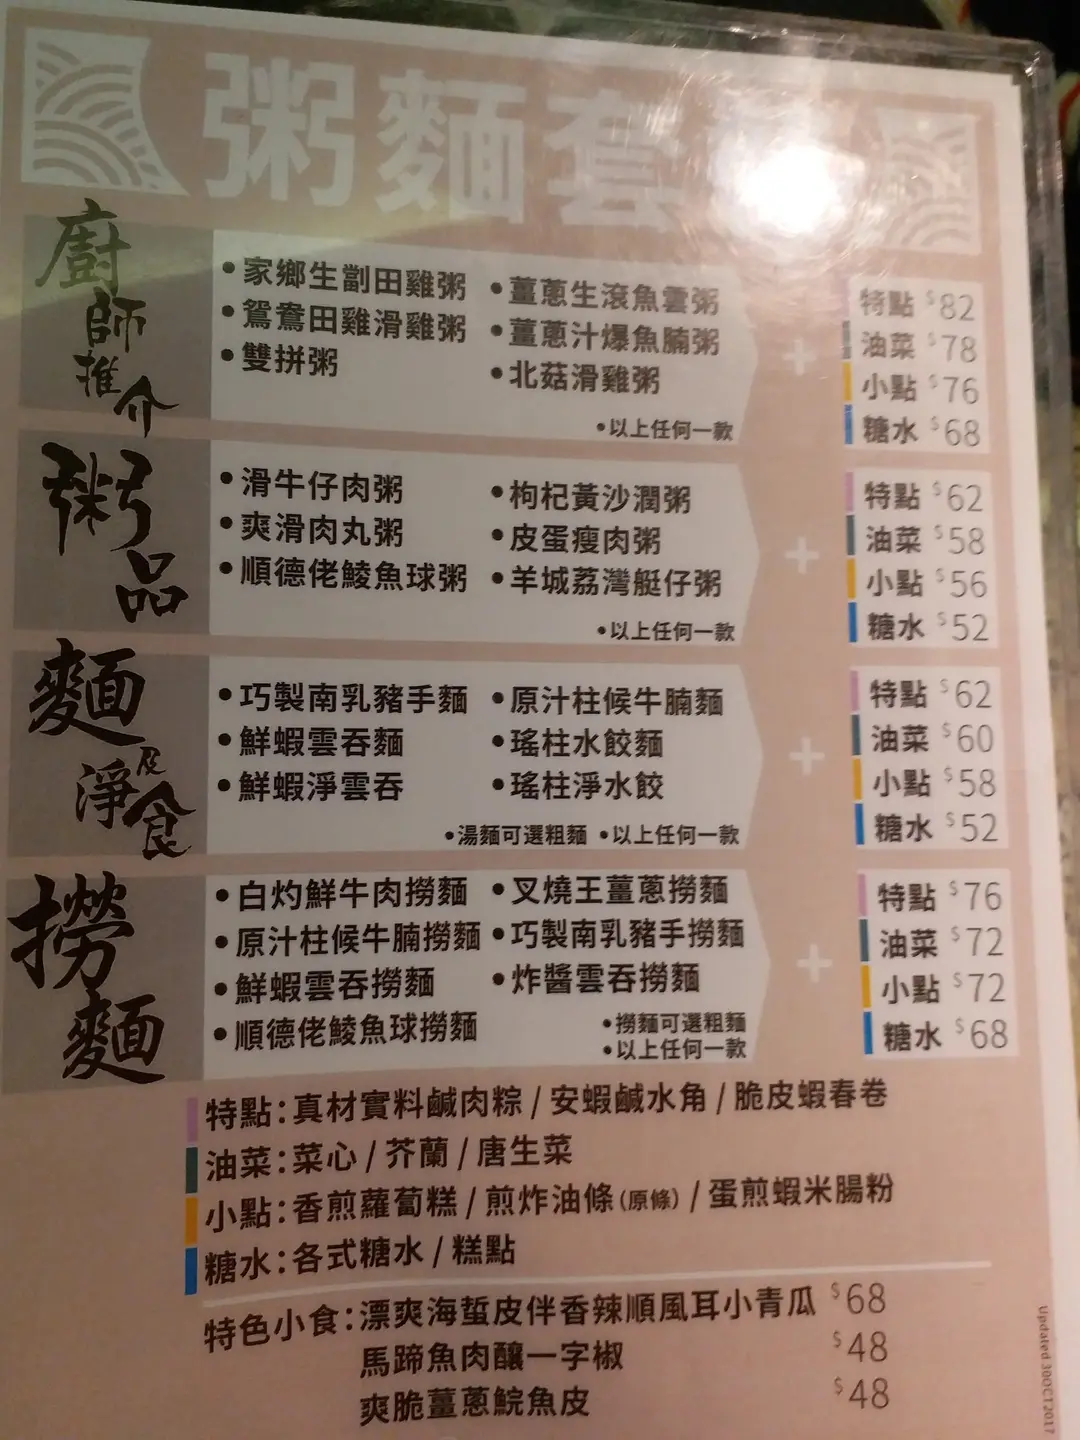 粥麵套
廚師推介
•家鄉生劏田雞粥 •薑蔥生滾魚雲粥
•鴛鴦田雞滑雞粥 •薑蔥汁爆魚腩粥
•雙拼粥 •北菇滑雞粥
•以上任何一款
+
特點 $82
油菜 $78
小點 $76
糖水 $68
粥品
•滑牛仔肉粥 •枸杞黃沙潤粥
•爽滑肉丸粥 •皮蛋瘦肉粥
•順德佬鯪魚球粥 •羊城荔灣艇仔粥
•以上任何一款
+
特點 $62
油菜 $58
小點 $56
糖水 $52
麵及淨食
•巧製南乳豬手麵 •原汁柱候牛腩麵
•鮮蝦雲吞麵 •瑤柱水餃麵
•鮮蝦淨雲吞 •瑤柱淨水餃
•湯麵可選粗麵 •以上任何一款
+
特點 $62
油菜 $60
小點 $58
糖水 $52
撈麵
•白灼鮮牛肉撈麵 •叉燒王薑蔥撈麵
•原汁柱候牛腩撈麵 •巧製南乳豬手撈麵
•鮮蝦雲吞撈麵 •炸醬雲吞撈麵
•順德佬鯪魚球撈麵
•撈麵可選粗麵
•以上任何一款
+
特點 $76
油菜 $72
小點 $72
糖水 $68
特點：真材實料鹹肉粽 / 安蝦鹹水角 / 脆皮蝦春卷
油菜：菜心 / 芥蘭 / 唐生菜
小點：香煎蘿蔔糕 / 煎炸油條(原條) / 蛋煎蝦米腸粉
糖水：各式糖水 / 糕點
特色小食：漂爽海蜇皮伴香辣順風耳小青瓜 $68
馬蹄魚肉釀一字椒 $48
爽脆薑蔥鯇魚皮 $48
Updated 30OCT2017